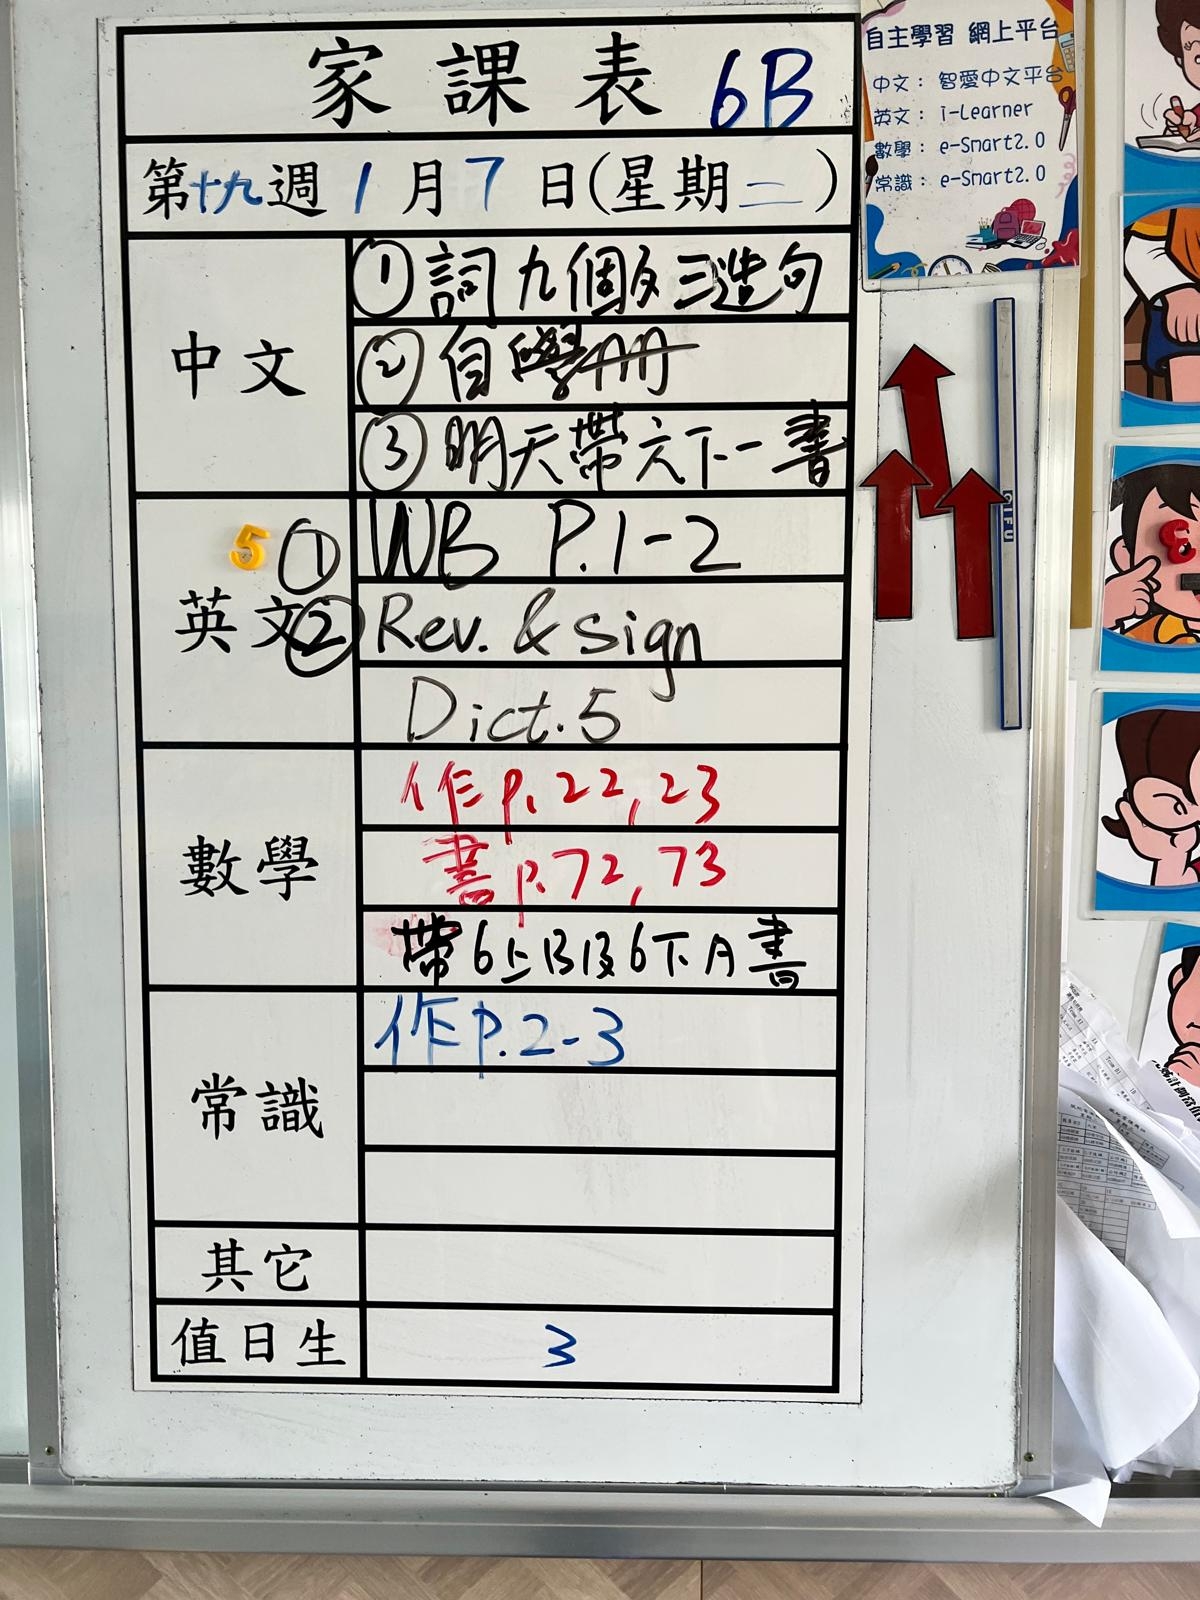 家課表 6B
第十九週 1月7日(星期二)
中文
①詞九個及三造句
②自學冊
③明天帶六下一書
英文
5
① WB P.1-2
② Rev. & sign
Dict. 5
數學
作 p. 22, 23
書 p. 72, 73
帶6上B及6下A書
常識
作 P. 2-3
其它
值日生
3
自主學習 網上平台
中文：智愛中文平台
英文：i-Learner
數學：e-Smart2.0
常識：e-Smart2.0